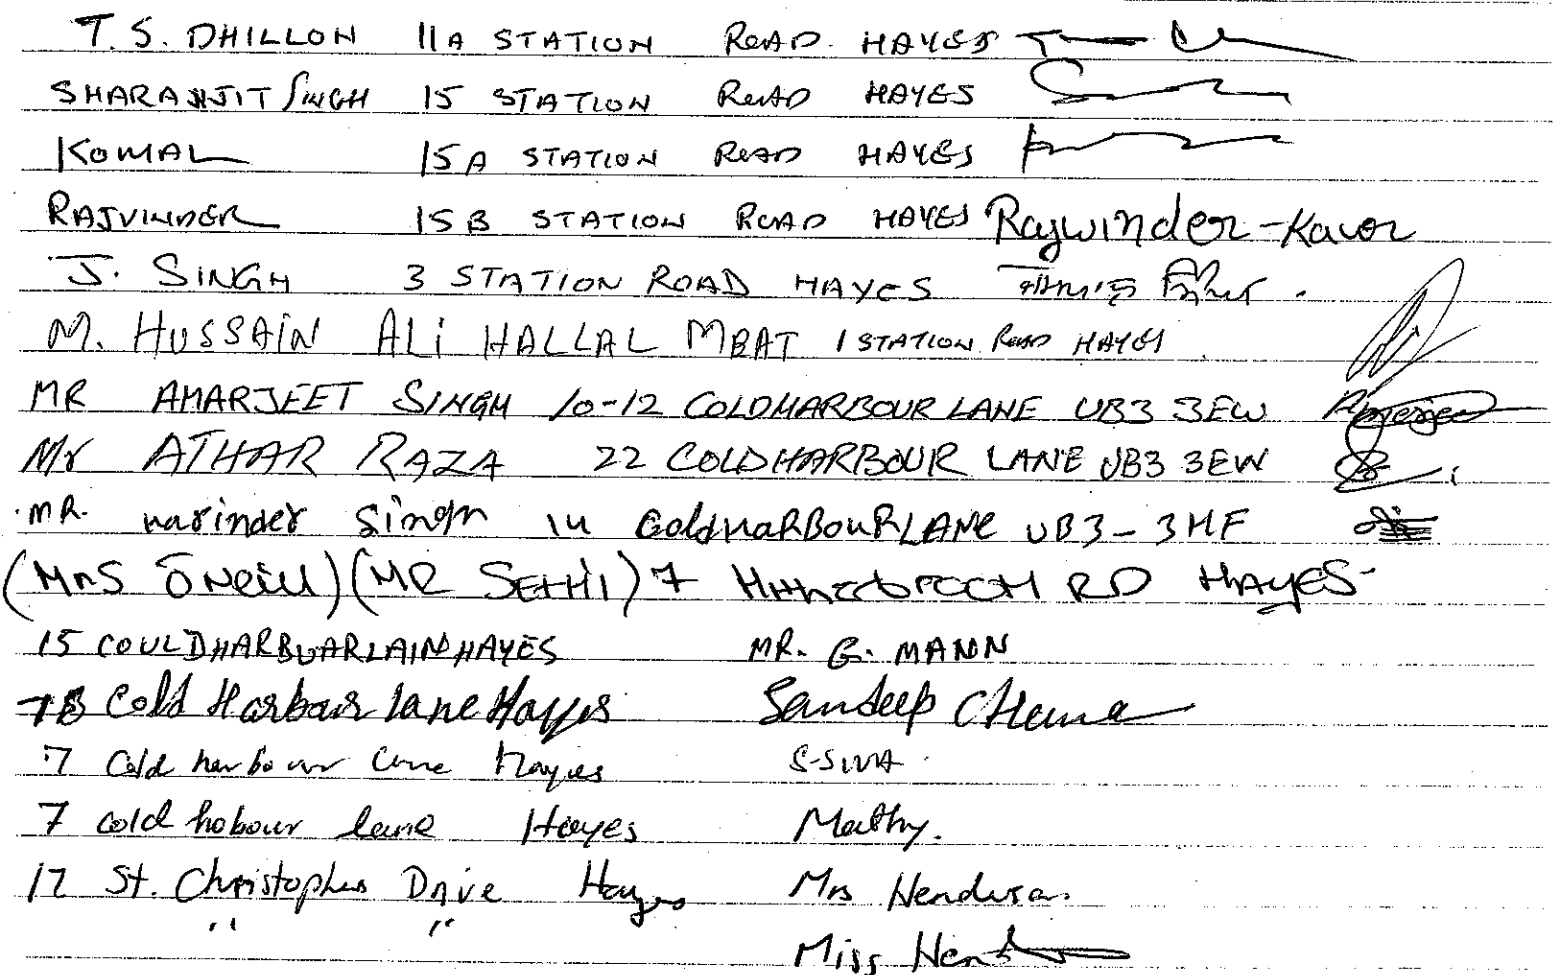 T. S. DHILLON 11A STATION ROAD. HAYES
SHARANJIT SINGH 15 STATION ROAD HAYES
KOMAL 15A STATION ROAD HAYES
RAJVINDER 15B STATION ROAD HAYES Rajwinder-Kaur
J. SINGH 3 STATION ROAD HAYES
M. HUSSAIN ALI HALLAL MBAT 1 STATION ROAD HAYES
MR AMARJEET SINGH 10-12 COLDHARBOUR LANE UB3 3EW
Mr ATHAR RAZA 22 COLDHARBOUR LANE UB3 3EW
MR. narinder Singh 14 ColdHaRBOURLANE UB3-3HF
(MRS ONeill) (MR SETHI) 7 RD HAYES
15 COULDHARBUARLAINHAYES MR. G. MANN
7B Cold Harbour lane Hayes Sandeep
7 Cold harbour lane Hayes
7 cold hobour lane Hayes Mathy.
17 St. Christophers Drive Hayes Mrs
" " Miss